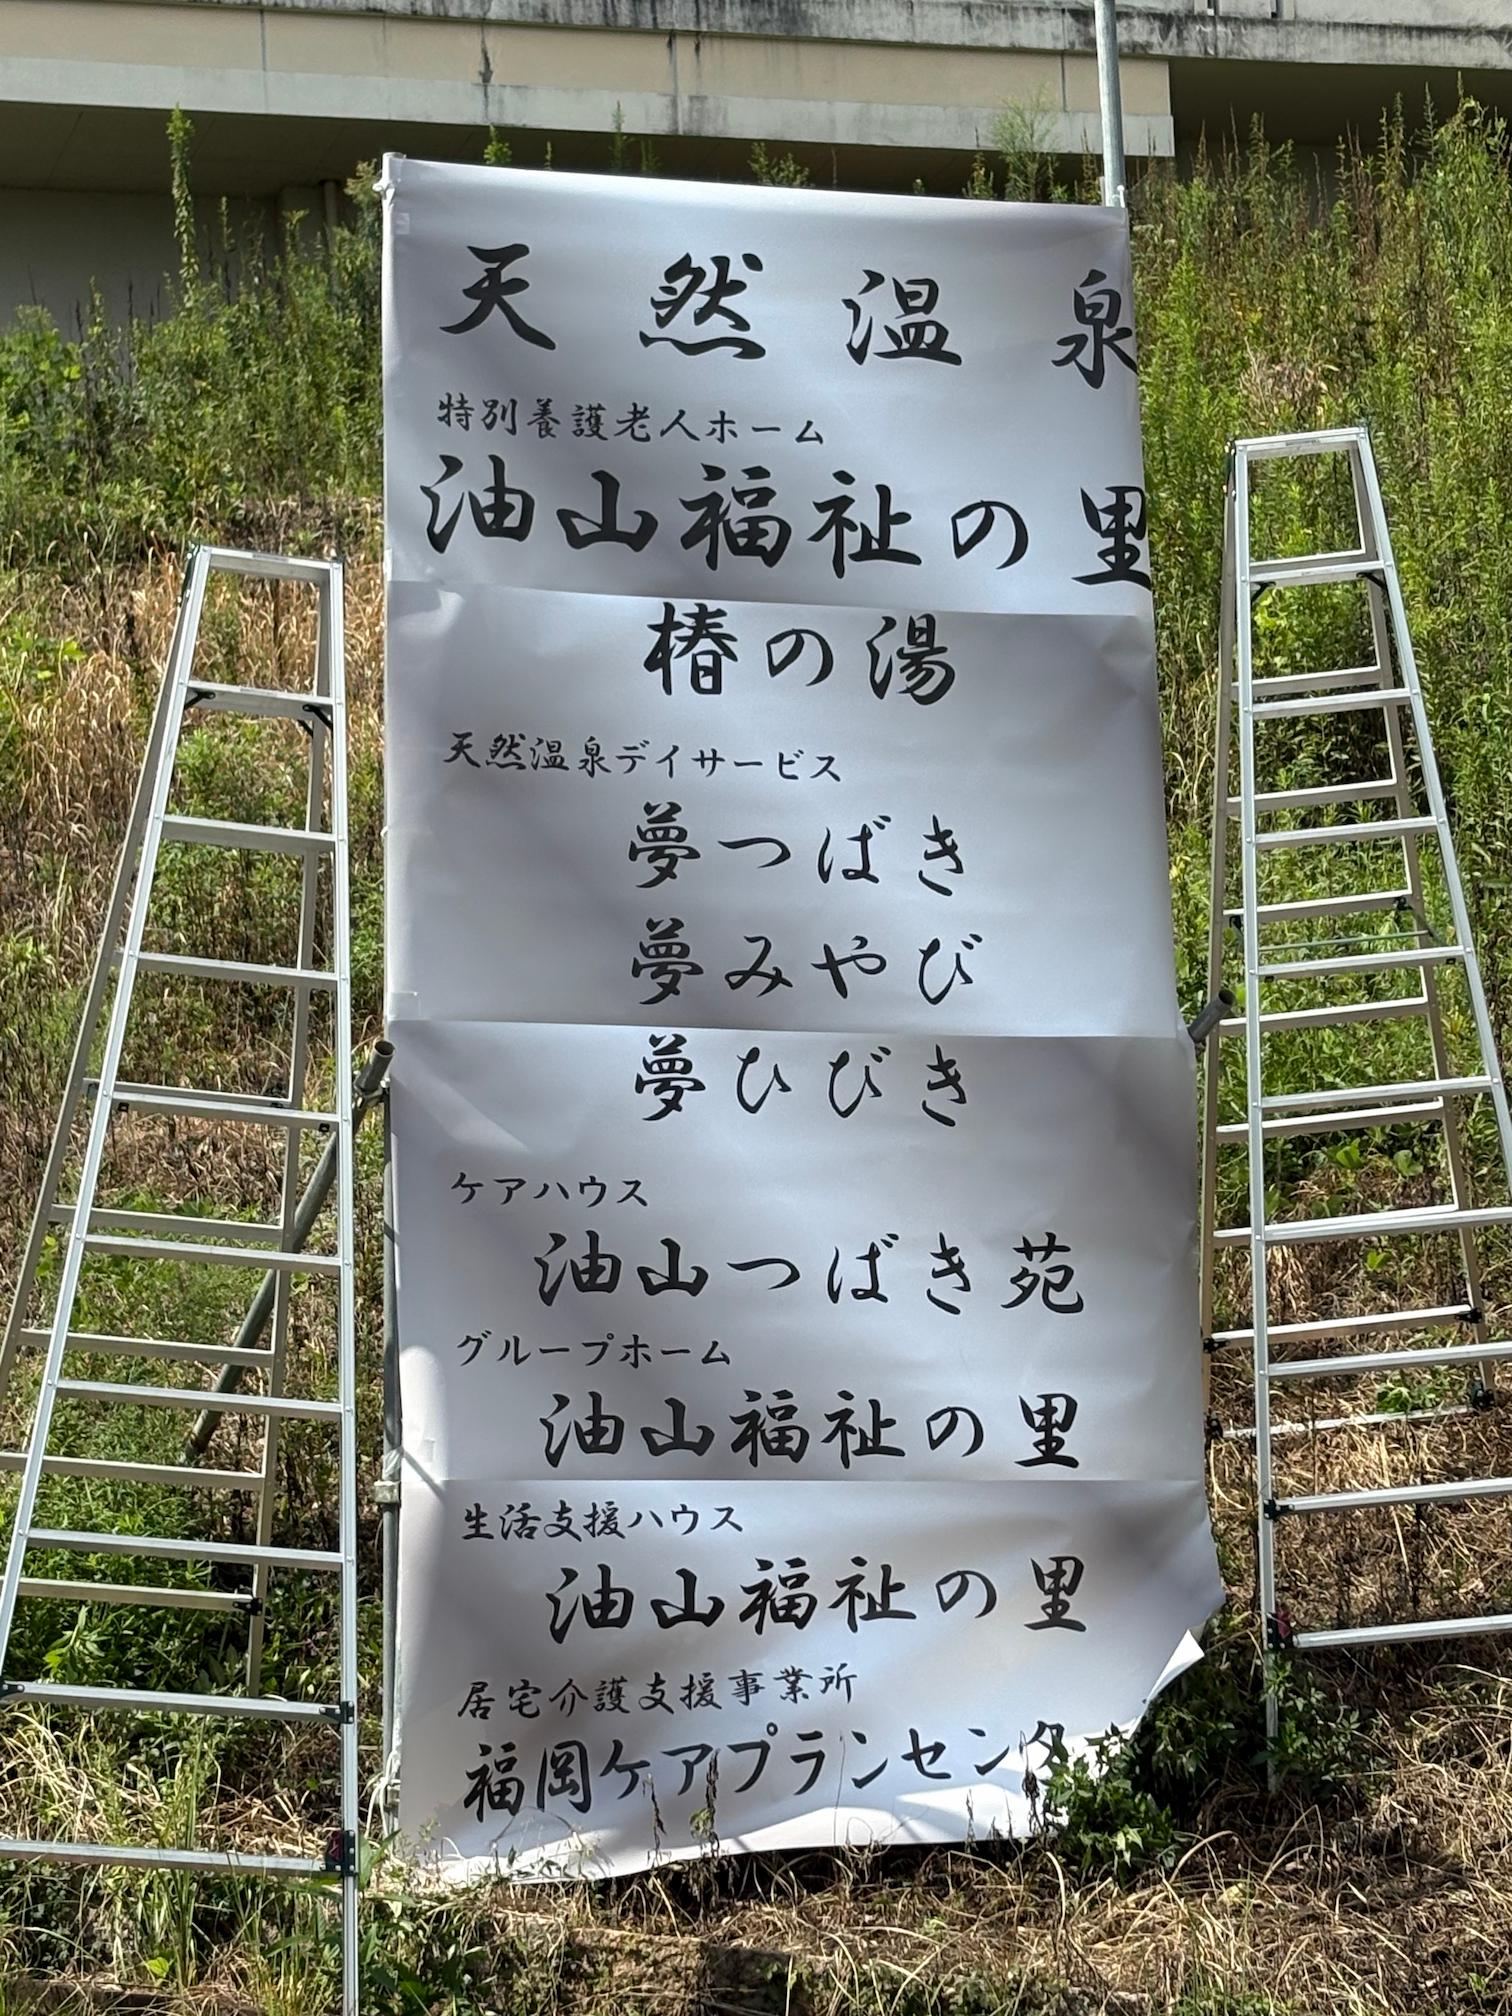 天然温泉
特別養護老人ホーム
油山福祉の里
椿の湯
天然温泉デイサービス
夢つばき
夢みやび
夢ひびき
ケアハウス
油山つばき苑
グループホーム
油山福祉の里
生活支援ハウス
油山福祉の里
居宅介護支援事業所
福岡ケアプランセンタ